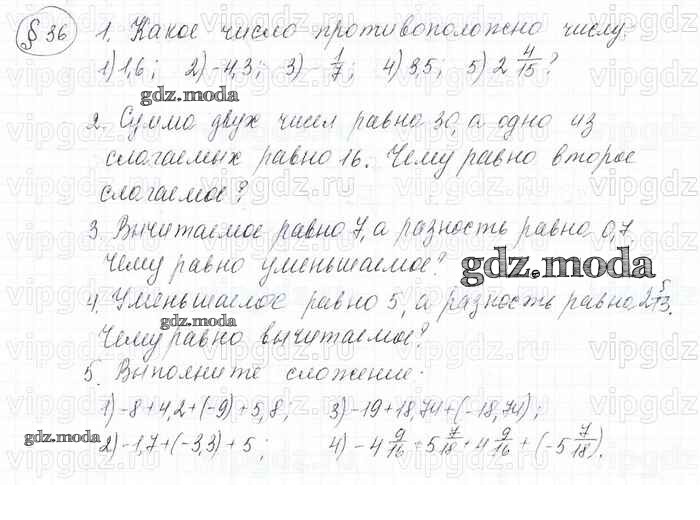 § 36 1. Какое число противоположно числу:
1) 1,6; 2) -4,3; 3) -1/7; 4) 3,5; 5) 2 4/15?
gdz.moda
2. Сумма двух чисел равно 30, а одно из
слагаемых равно 16. Чему равно второе
слагаемое?
3. Вычитаемое равно 7, а разность равно 0,7.
Чему равно уменьшаемое?
gdz.moda
4. Уменьшаемое равно 5, а разность равно 2 5/13.
gdz.moda
Чему равно вычитаемое?
5. Выполните сложение:
1) -8+4,2+(-9)+5,8; 3) -19+18,74+(-18,74);
gdz.moda
2) -1,7+(-3,3)+5; 4) -4 9/16 + 5 7/18 + 4 9/16 + (-5 7/18).